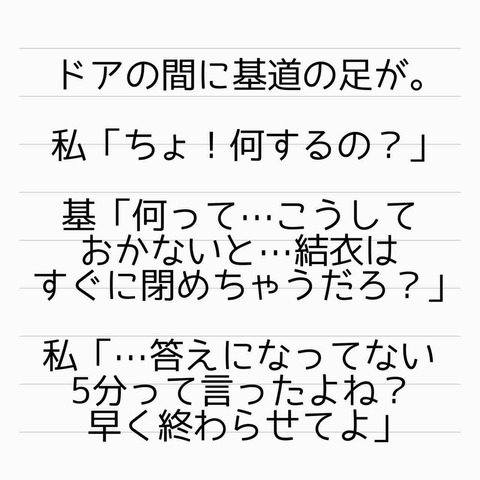 ドアの間に基道の足が。
私「ちょ！何するの？」
基「何って…こうして
おかないと…結衣は
すぐに閉めちゃうだろ？」
私「…答えになってない
5分って言ったよね？
早く終わらせてよ」